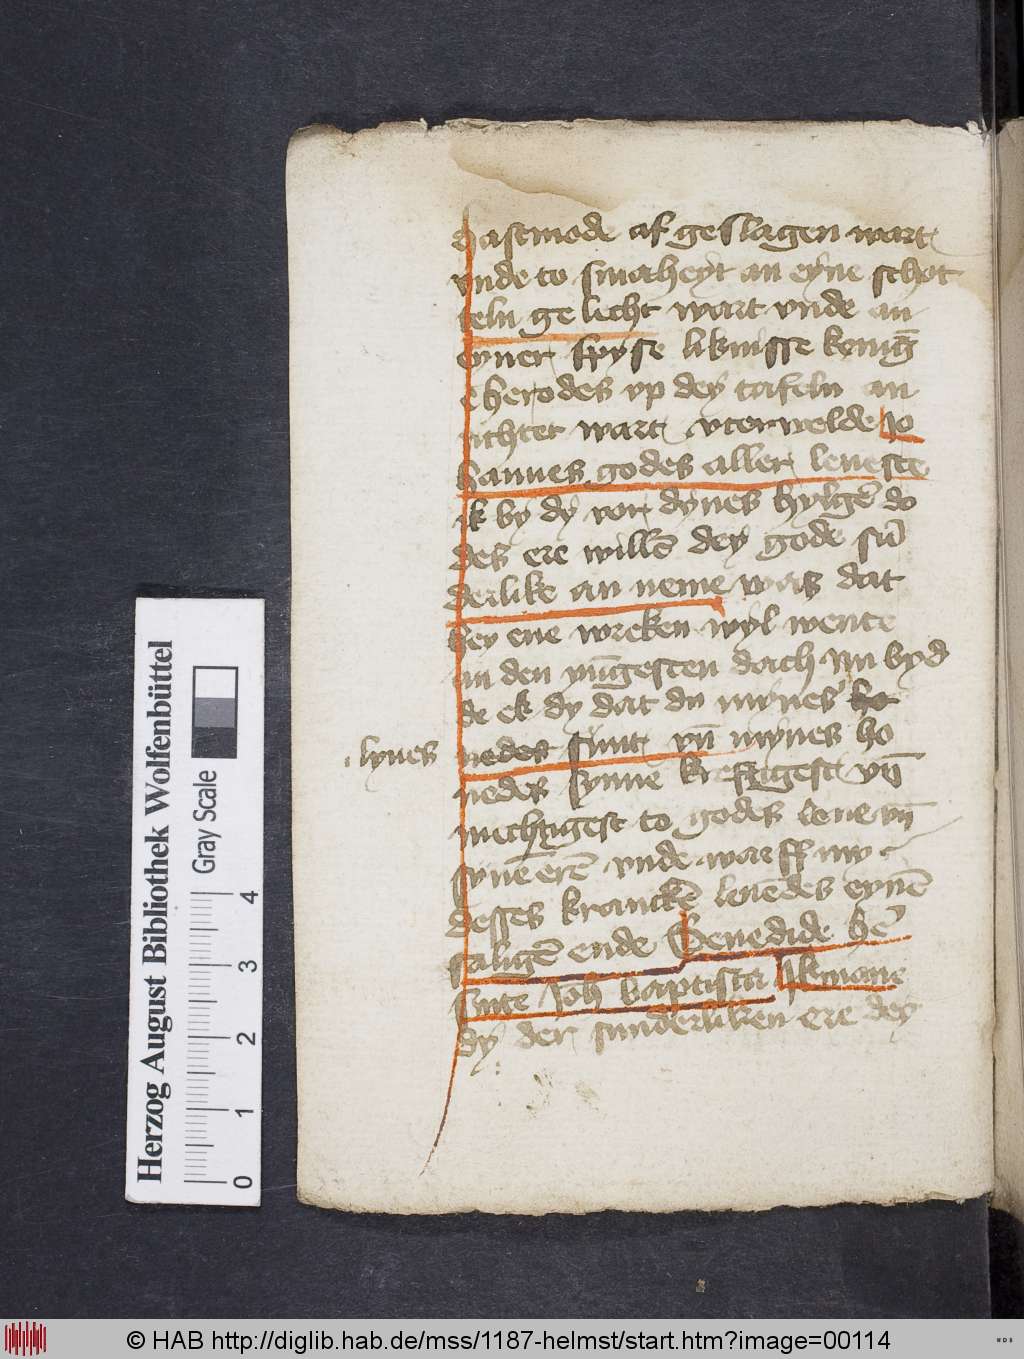 hastmode af geslagen wart
vnde to smaheyt an eyne schot
teln ge lecht wart vnde an
eyner spyse liknisse konīg
herodes vp dey tafeln an
richtet wart vterwelde Jo
hannes godes aller leueste
ik by dy vor dynes hylgē do
des ere willē dey gode sū
derlike an neme was dat
hey ene wreken wyl wente
an den yūgesten dach nu byd
de ek dy dat du mynes
nedes sunt vn̄ mynes ho
lyues
nedes synne kreftigest vn̄
mechtigest to godes loue vn̄
synē erē vnde warff my
desses kranckē leuēdes eynē
salygē ende Benedide hē
sunte Joh baptista Ik mane
dy der sunderliken ere dey
Herzog August Bibliothek Wolfenbüttel
Gray Scale
0 1 2 3 4
© HAB http://diglib.hab.de/mss/1187-helmst/start.htm?image=00114